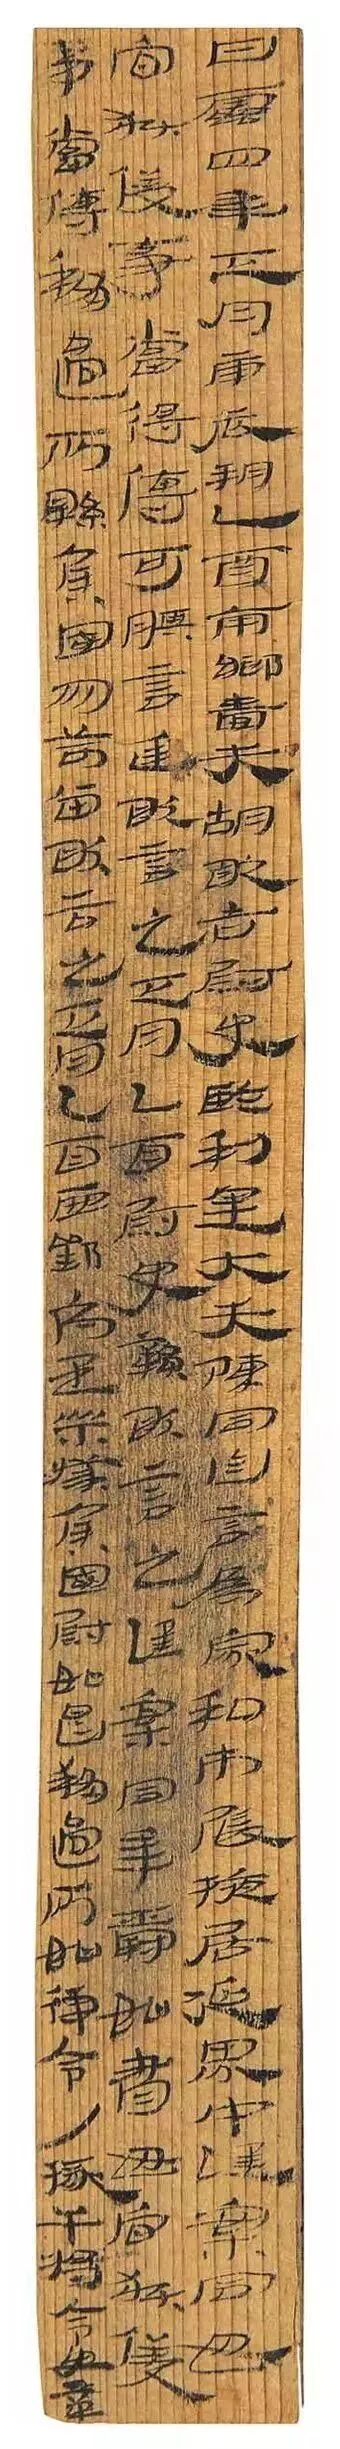 甘露四年正月庚辰朔乙酉南鄉嗇夫胡敢告尉史臨利里大夫陳同自言為家私市張掖居延界中謹案同毋
官獄徵事當得傳可期言廷敢言之正月乙酉尉史贛敢言之謹案同年爵如書毋官獄徵
事當傳移過所縣侯國勿苛留敢言之正月乙酉西鄂守丞樂成侯國尉如昌移過所如律令/掾干將令史章